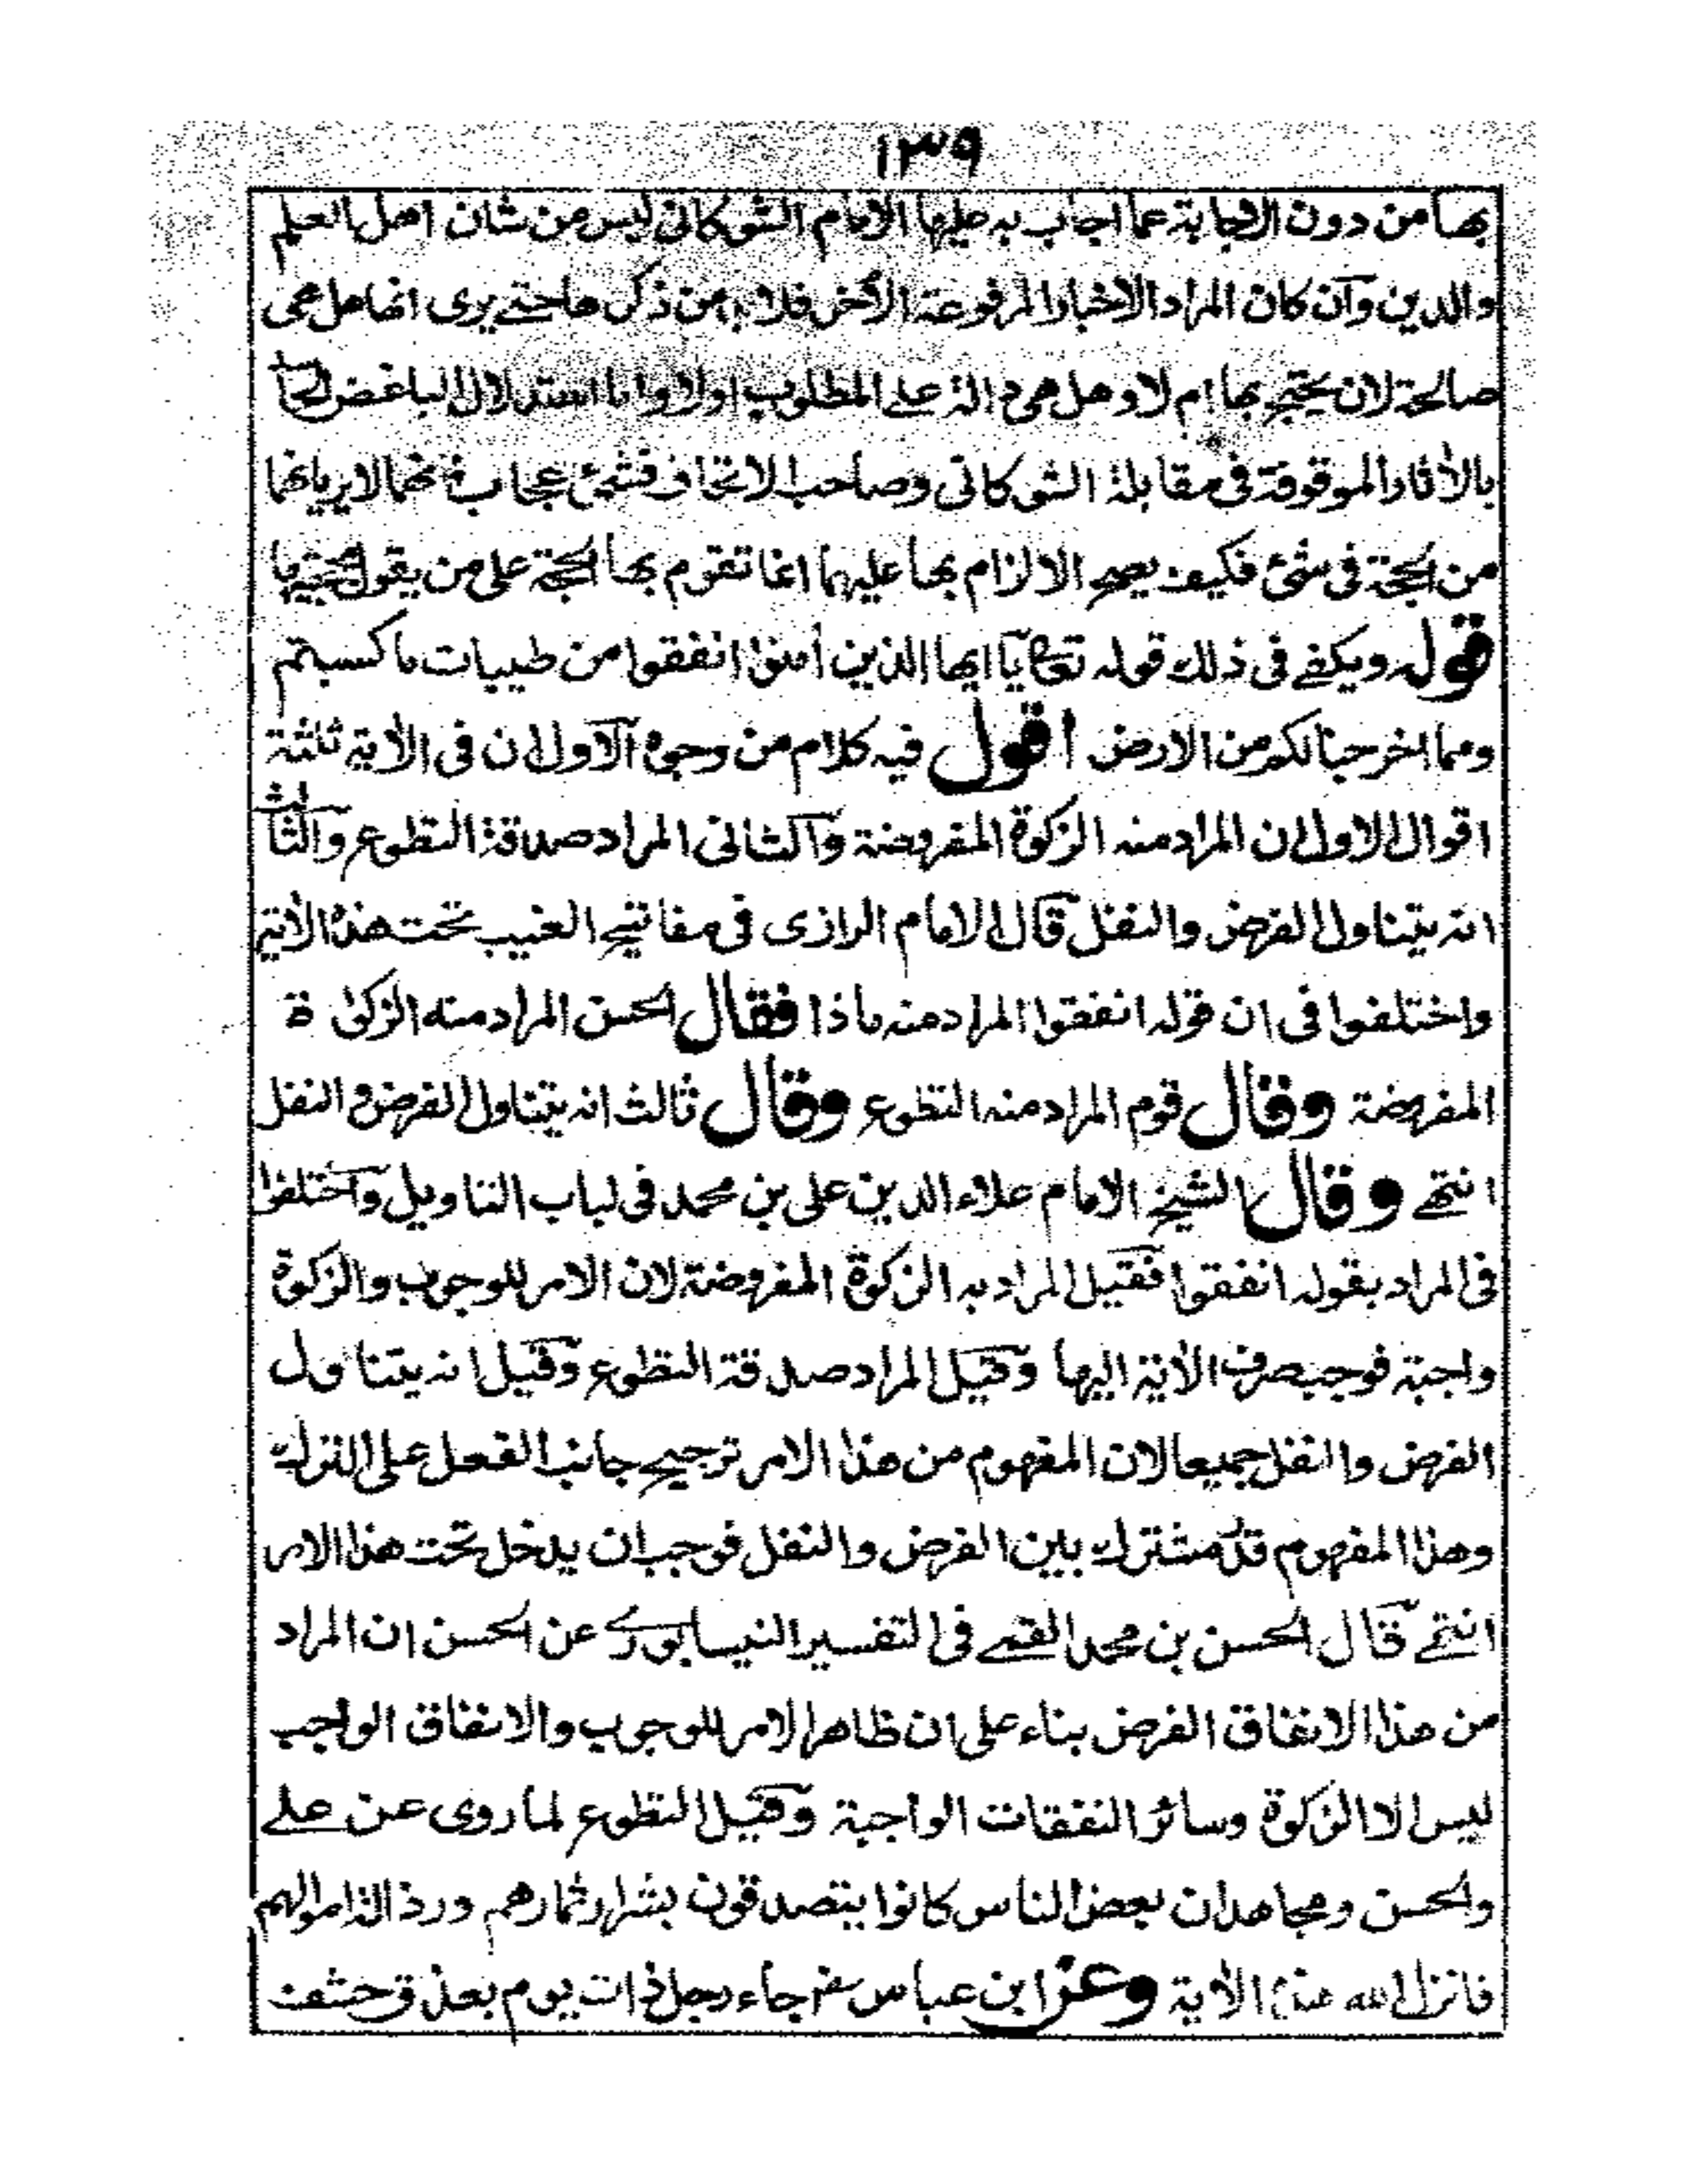 ١٣٩
بها من دون الاجابة عما اجاب به عليها الامام الشوكانى ليس من شان اهل العلم
والدين وآن كان المراد الاخبار المرفوعة الأخر فلا بد من ذكرها حتے يرى انها هل هى
صالحة لان يحتج بها ام لا وهل هى دالة علے المطلوب اولا واما استدلال الباغض
بالأثار الموقوفة فى مقابلة الشوكانى وصاحب الاتحاف فشئ عجاب فانهما لا يريانها
من الحجة فى شئ فكيف يصح الالزام بها عليهما انما تقوم بها الحجة على من يقول بحجيتها
قوله ويكفے فى ذلك قوله تعالى يآ ايها الذين أمنوا انفقوا من طيبات ما كسبتم
ومما اخرجنا لكم من الارض اقول فيه كلام من وجوه آلاول ان فى الأية ثلثة
اقوال الاول ان المراد منه الزكوة المفروضة وآلثانى المراد صدقة التطوع وآلثالث
انه يتناول الفرض والنفل قآل الامام الرازى فى مفاتيح الغيب تحت هذه الأية
واختلفوا فى ان قوله انفقوا المراد منه ماذا فقال الحسن المراد منه الزكوٰة
المفروضة وقال قوم المراد منه التطوع وقال ثالث انه يتناول الفرض والنفل
انتهے وقال الشيخ الامام علاء الدين على بن محمد فى لباب التاويل وآختلفوا
فى المراد بقوله انفقوا فقيل المراد به الزكوة المفروضة لان الامر للوجوب والزكوة
واجبة فوجب صرف الأية اليها وقيل المراد صدقة التطوع وقيل انه يتناول
الفرض والنفل جميعا لان المفهوم من هذا الامر ترجيح جانب الفعل على الترك
وهذا المفهوم قدر مشترك بين الفرض والنفل فوجب ان يدخل تحت هذا الامر
انتهے قآل الحسن بن محمد القمے فى التفسير النيسابورے عن الحسن ان المراد
من هذا الانفاق الفرض بناء على ان ظاهر الامر للوجوب والانفاق الواجب
ليس الا الزكوة وسائر النفقات الواجبة وقيل التطوع لما روى عن علے
والحسن ومجاهد ان بعض الناس كانوا يتصدقون بشرار ثمارهم ورذالة اموالهم
فانزل الله هذه الأية وعن ابن عباس رضي جاء رجل ذات يوم بعذق حشف